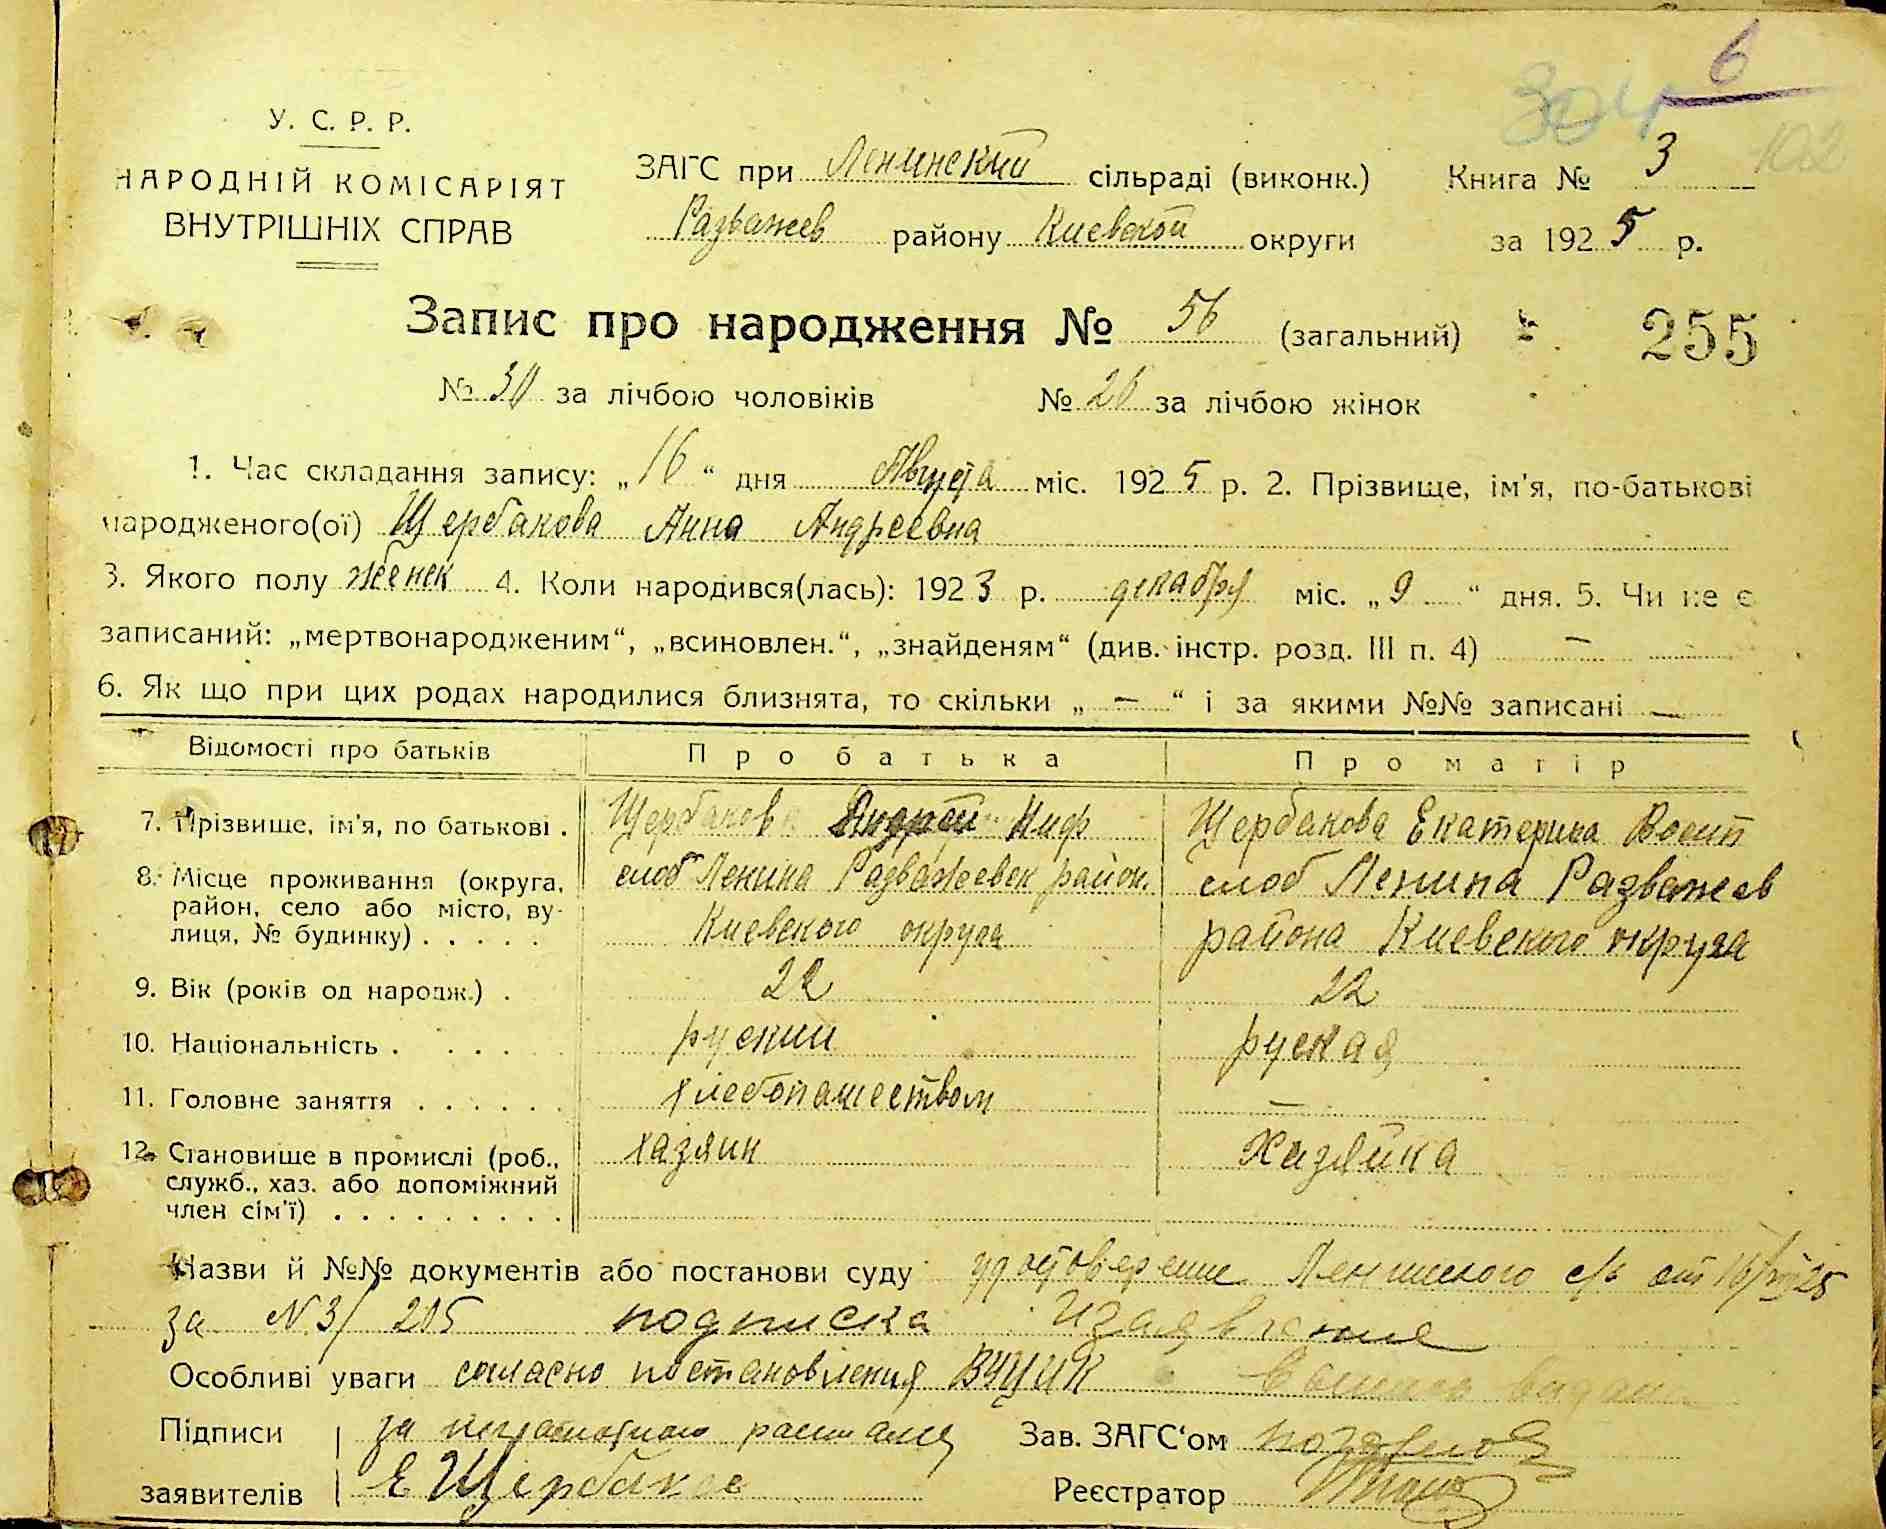 6
304
102
У. С. Р. Р.
НАРОДНІЙ КОМІСАРІЯТ
ВНУТРІШНІХ СПРАВ
ЗАГС при Ленинский сільраді (виконк.) Книга № 3
Розважев району Киевской округи за 1925 р.
Запис про народження № 56 (загальний) 255
№ 30 за лічбою чоловіків № 26 за лічбою жінок
1. Час складання запису: „16“ дня Августа міс. 1925 р. 2. Прізвище, ім'я, по-батькові
народженого(ої) Щербакова Анна Андреевна
3. Якого полу женск 4. Коли народився(лась): 1923 р. декабря міс. „9“ дня. 5. Чи не є
записаний: „мертвонародженим“, „всиновлен.“, „знайденям“ (див. інстр. розд. III п. 4) —
6. Як що при цих родах народилися близнята, то скільки „—“ і за якими №№ записані —
Відомості про батьків Про батька Про матір
7. Прізвище, ім'я, по батькові . Щербаков Андрей Ниф Щербакова Екатерина Восип
8. Місце проживання (округа, слоб Ленина Разважевск район. слоб Ленина Разважев
район, село або місто, ву- Киевского округа района Киевского округа
лиця, № будинку) . . . . .
9. Вік (років од народж.) . 22 22
10. Національність . . . . руский руская
11. Головне заняття . . . . . . хлебопашеством —
12. Становище в промислі (роб., хазяин Хазяйка
служб., хаз. або допоміжний
член сім'ї) . . . . . . . . .
Назви й №№ документів або постанови суду удостоверение Ленинского с/с от 16/VIII 25
за N 3/ 205 подписка и заявление
Особливі уваги согласно постановления ВУЦИК
Підписи за неграмотного росписался Зав. ЗАГС‘ом
заявителів Е Щербаков Реєстратор